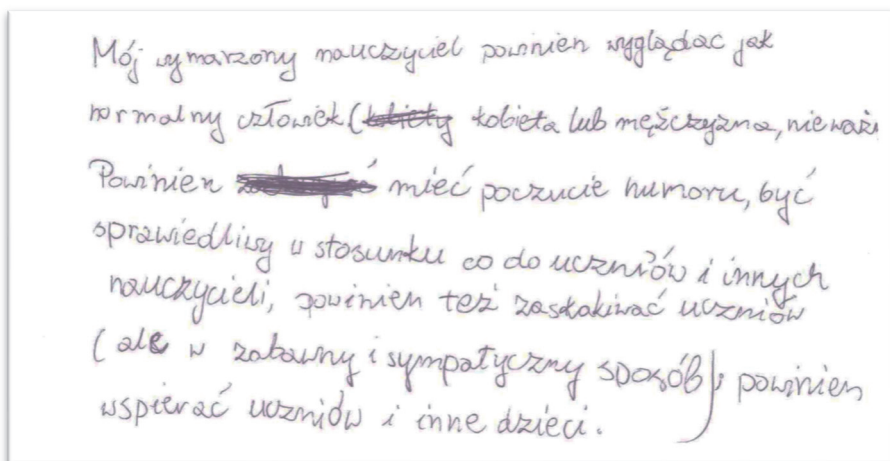 Mój wymarzony nauczyciel powinien wyglądac jak
normalny człowiek (kobiety kobieta lub mężczyzna, nieważn
Powinien mieć poczucie humoru, być
sprawiedliwy w stosunku co do uczniów i innych
nauczycieli, powinien też zaskakiwać uczniów
(ale w zabawny i sympatyczny sposób); powinien
wspierać uczniów i inne dzieci.